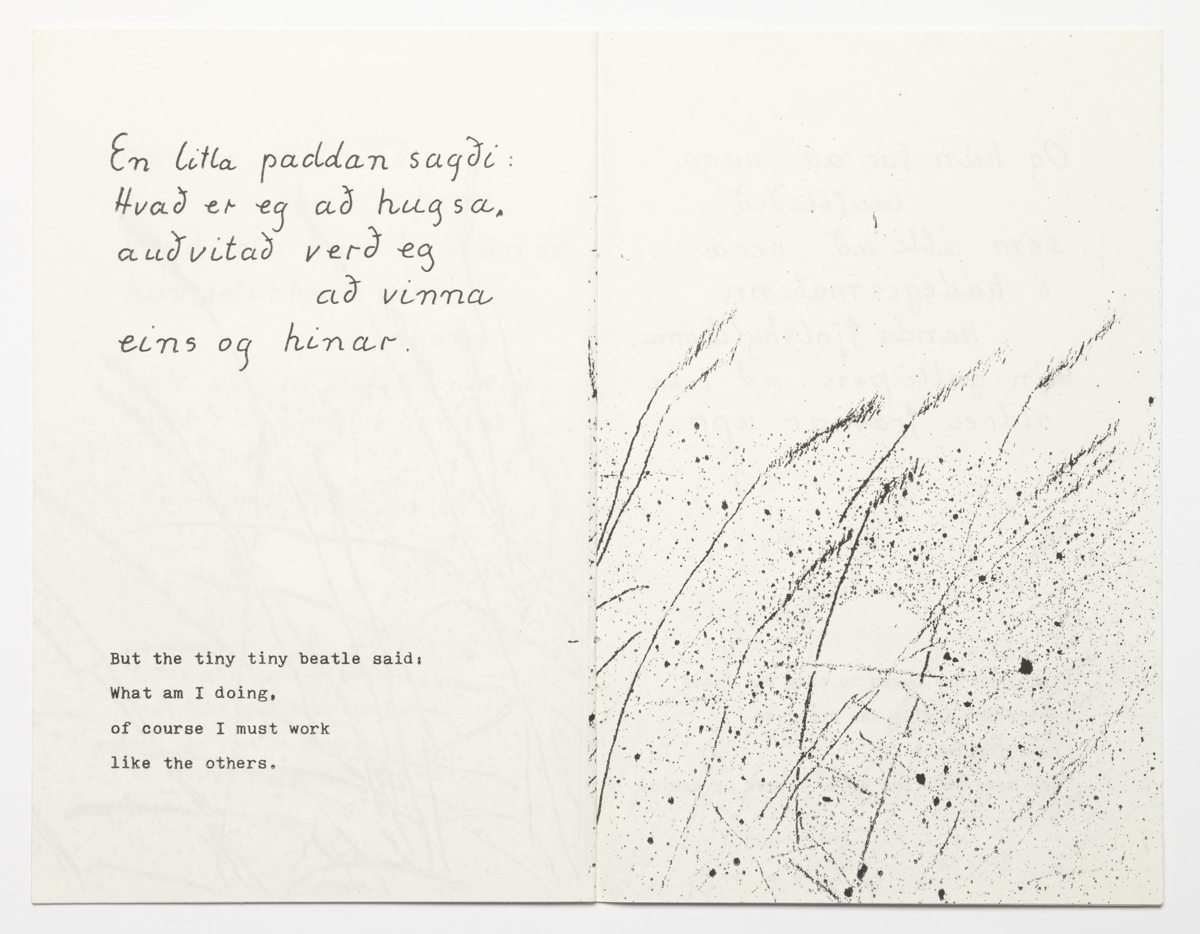 En litla paddan sagði:
Hvað er eg að hugsa,
auðvitað verð eg
að vinna
eins og hinar.
But the tiny tiny beatle said:
What am I doing,
of course I must work
like the others.